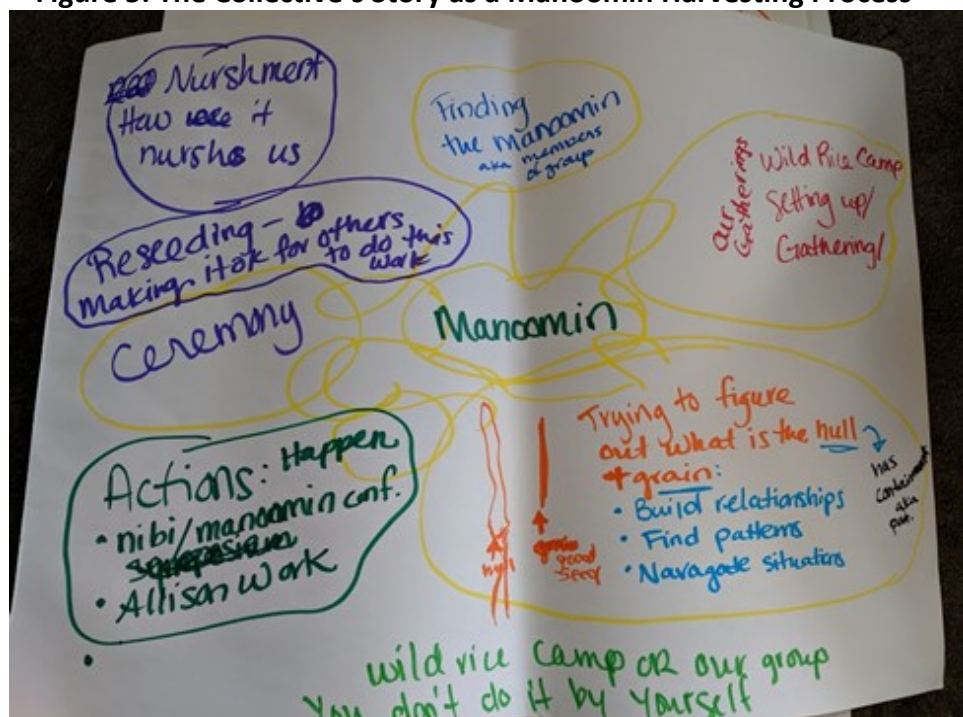 Figure 3: The Collective's Story as a Manoomin Harvesting Process
Nurshment
How it
nurshes us
Finding
the manoomin
aka members
of group
Our
Gatherings
Wild Rice Camp
Setting up/
Gathering/
Reseeding -
making it ok for others
to do this
work
Ceremony
Manoomin
Actions: Happen
• nibi/manoomin conf.
• Allison Work
•
hull
good
seed
Trying to figure
out what is the hull
+ grain:
• Build relationships
• Find patterns
• Navagate situations
has
aka
wild rice camp OR our group
You don't do it by yourself